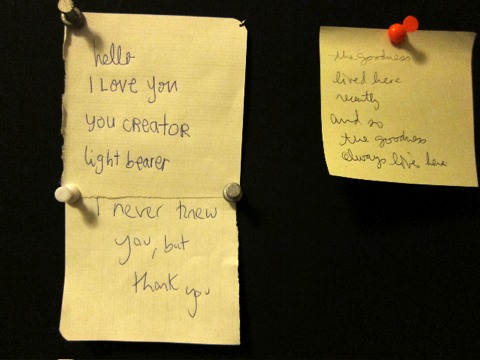 hello
I LOVE you
you CREATOR
light bearer
I never knew
you, but
thank you
the goodness
lived here
recently
and so
the goodness
always live here